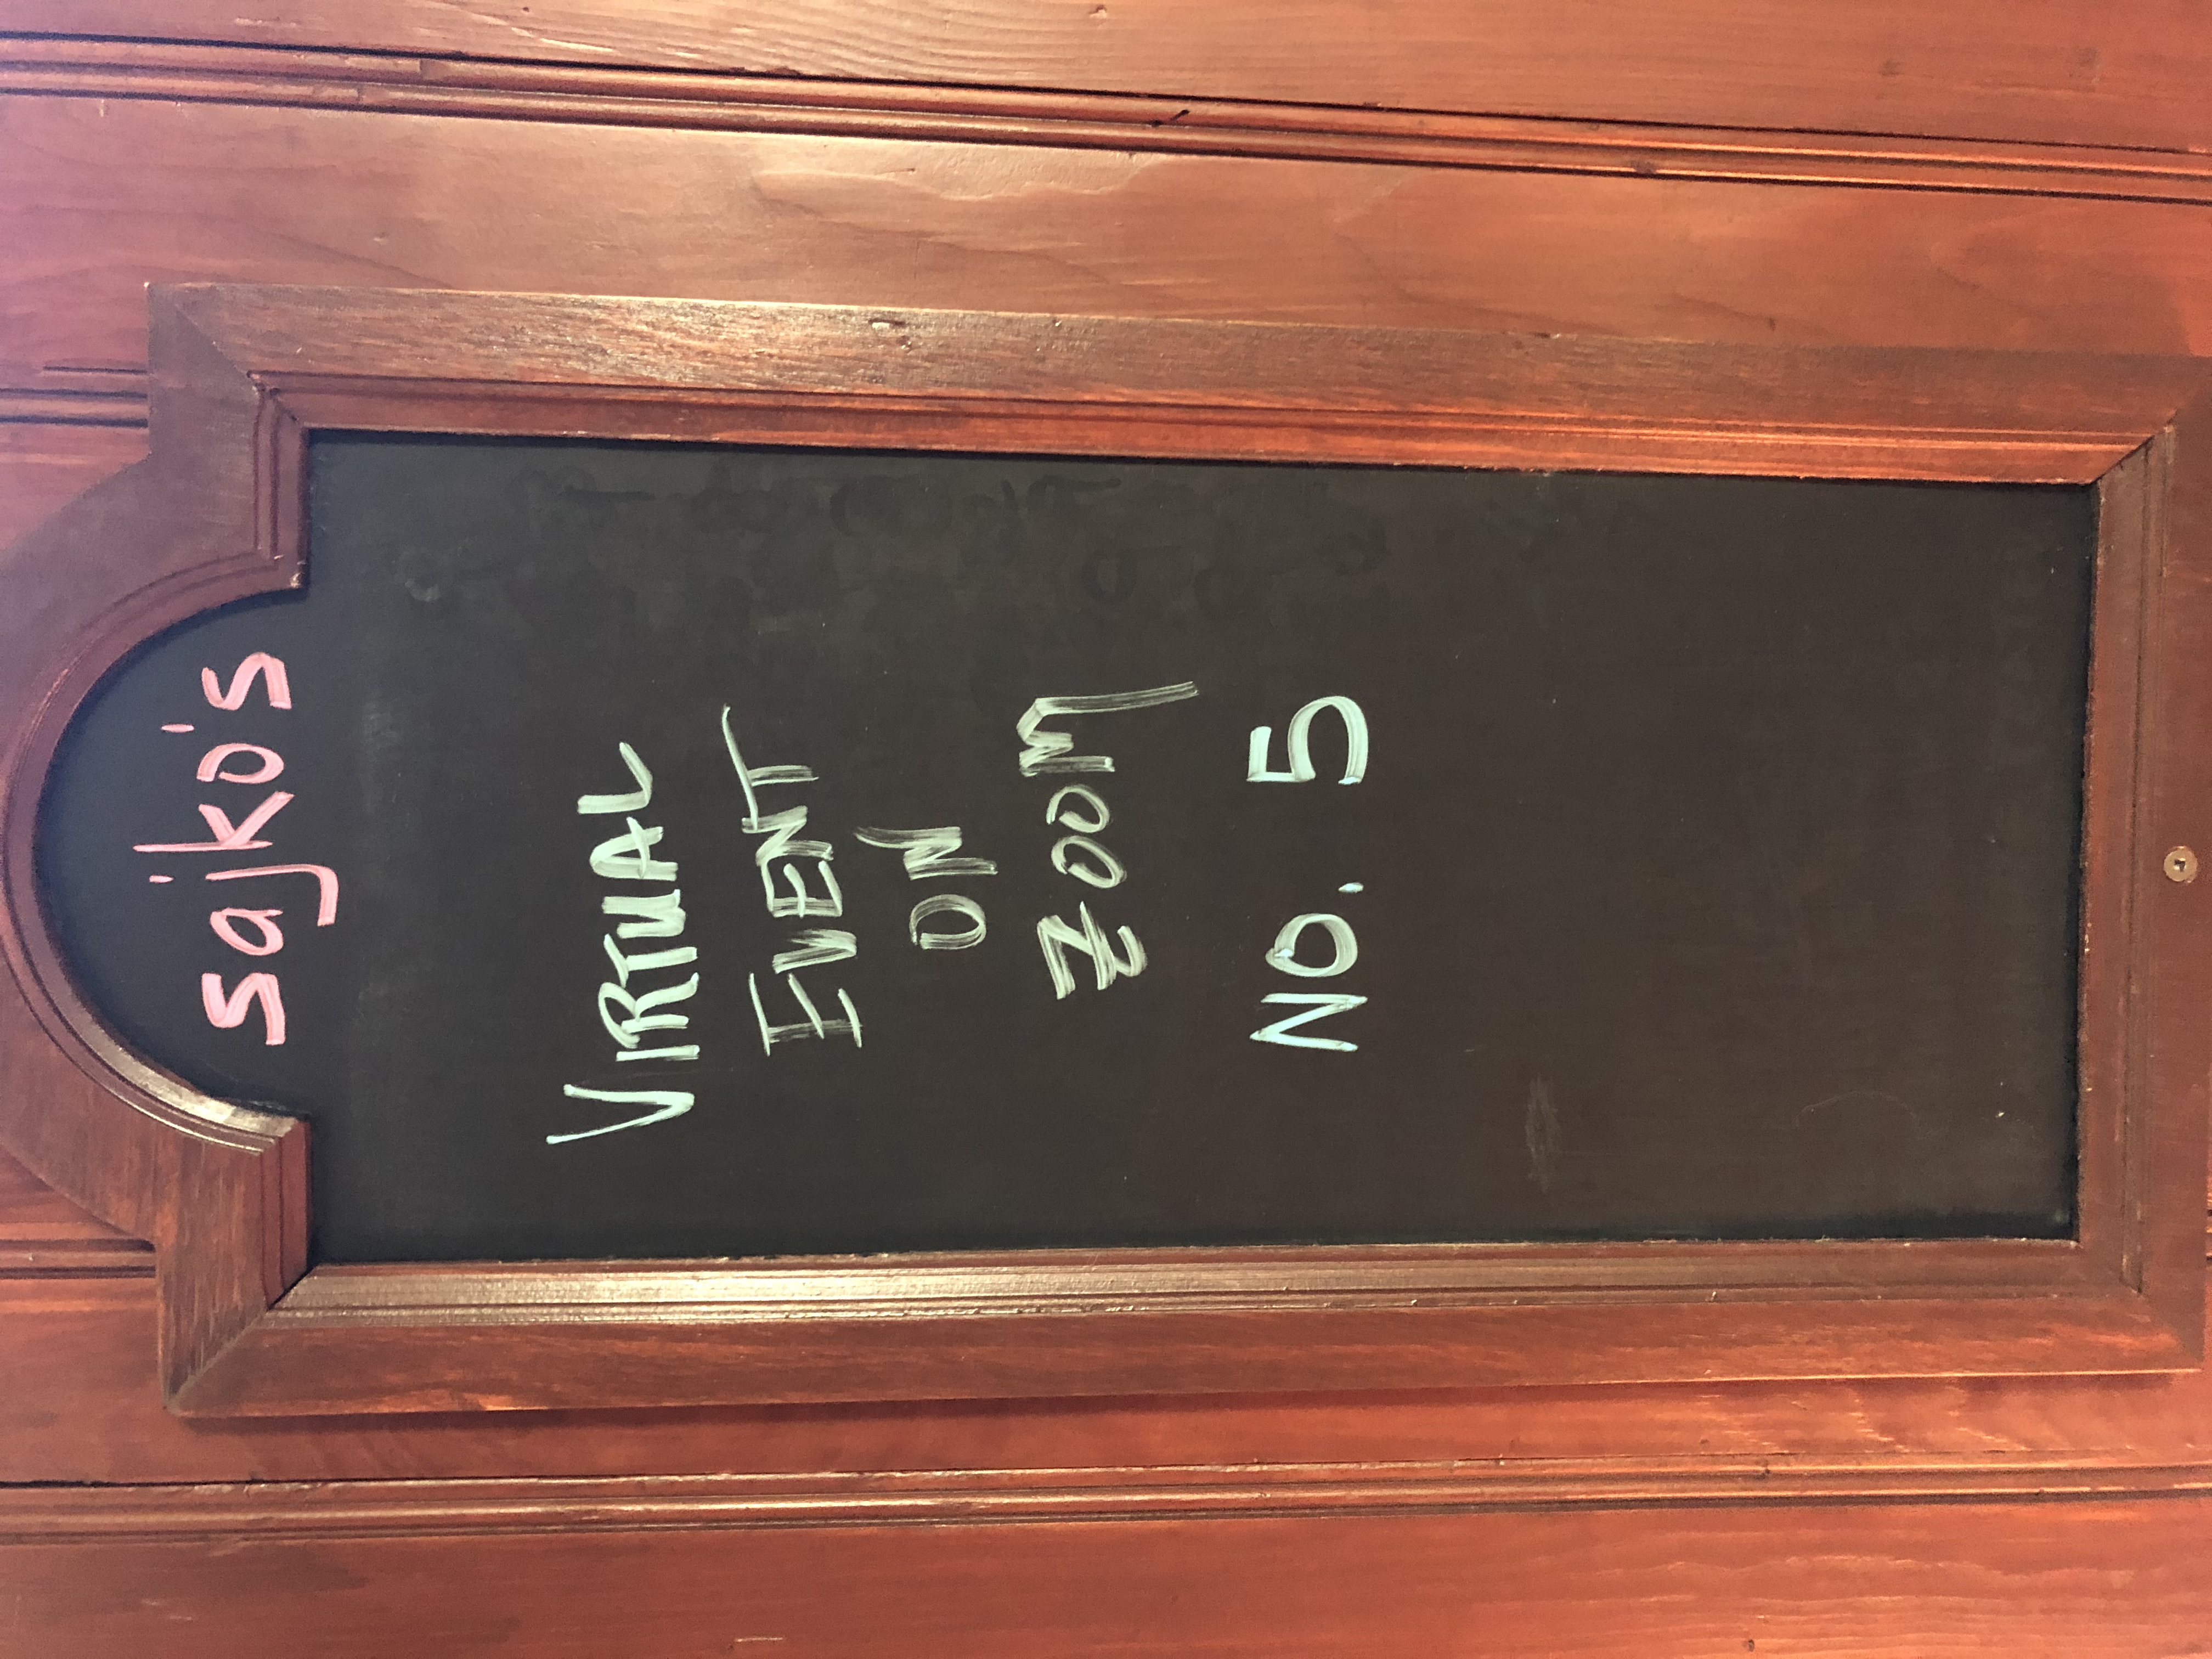 sajko's
VIRTUAL
EVENT
ON
ZOOM
NO. 5